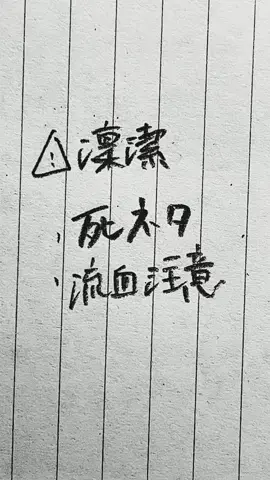 ⚠凜潔
・死ネタ
・流血注意